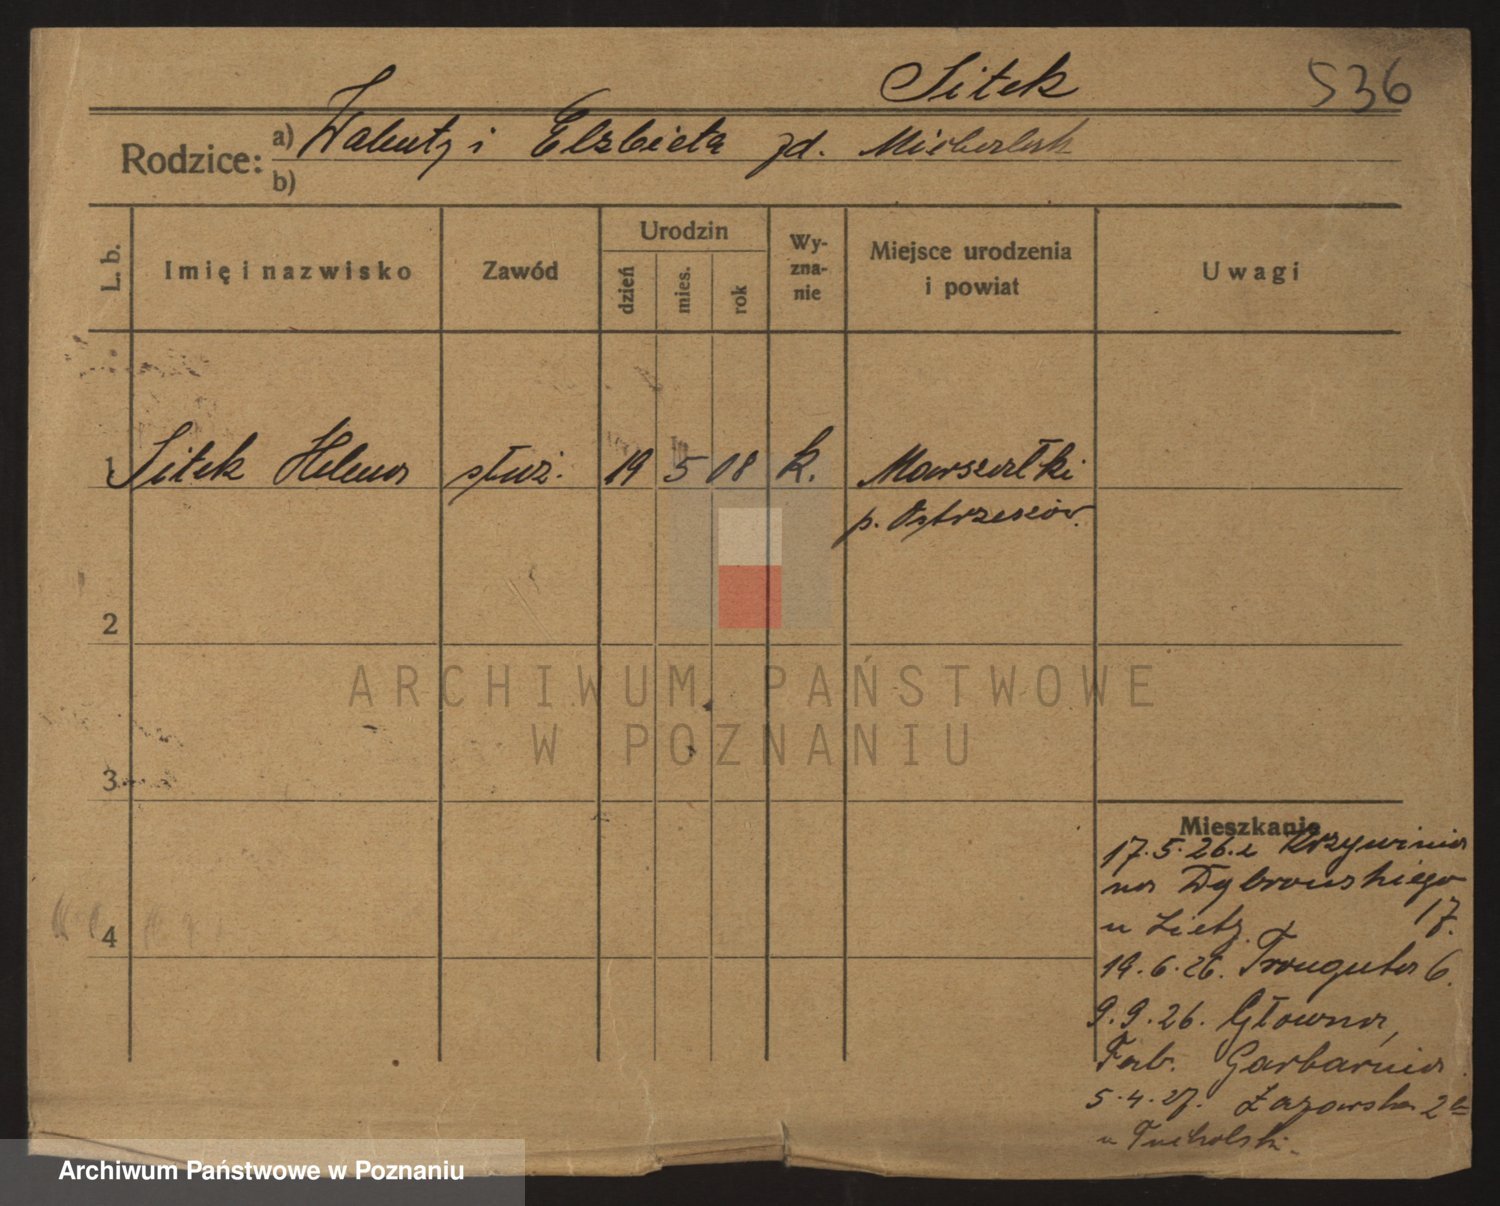 Sitek
536
Rodzice:
a) Walenty i Elżbieta zd.
b)
L. b.
Imię i nazwisko
Zawód
Urodzin
dzień
mies.
rok
Wy-
zna-
nie
Miejsce urodzenia
i powiat
Uwagi
1 Sitek Helena służ. 19 5 08 k. Marszałki
p. Ostrzeszów.
2
3
4
Mieszkanie
17.5.26. z Krzywinia
na Dąbrowskiego
17.
u Zietz.
19.6.26. Trauguta 6.
9.9.26. Główna,
Fab. Garbarnia.
5.4.27. Łazowska 2a
u Tucholski.
ARCHIWUM PAŃSTWOWE
W POZNANIU
Archiwum Państwowe w Poznaniu